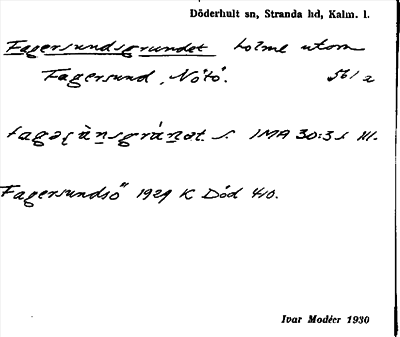 Döderhult sn, Stranda hd, Kalm. l.
Fagersundsgrundet holme utom
Fagersund, Nötö. 56/2
IMA 30:3
Fagersundsö" 1929 K Död 410.
Ivar Modéer 1930